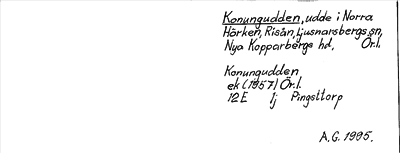 Konungudden, udde i Norra
Hörken, Risån, Ljusnarsbergs sn,
Nya Kopparbergs hd, Ör.l.
Konungudden
ek (1957) Ör.l.
12E 1j Pingsttorp
A.G. 1995.